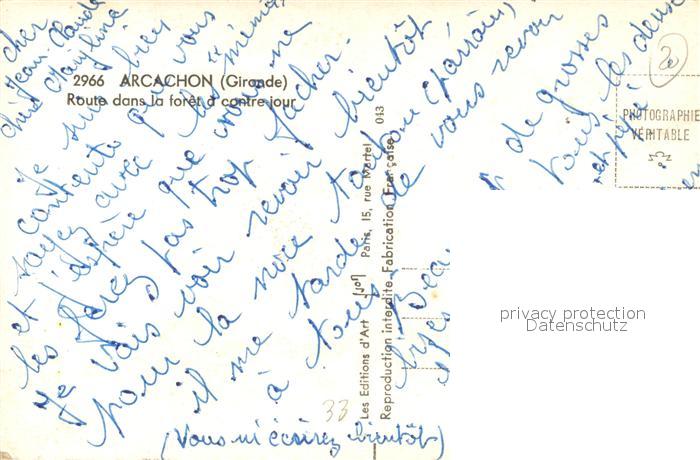 cher
Jean-Claude
chère
2966 ARCACHON (Gironde)
Route dans la forêt à contre jour
Je suis bien
contente que vous
soyez avec les mémés
et j'espère que vous ne
les ferez pas trop fâcher.
Je vais voir revoir bientôt
pour la noce
il me tarde de vous revoir
à tous.
(Vous m'écrirez bientôt)
de grosses
tous les deux
et pépé
Les Editions d'Art "JOP" Paris, 15, rue Martel 013
Reproduction interdite. Fabrication Française
PHOTOGRAPHIE
VÉRITABLE
33
2
privacy protection
Datenschutz